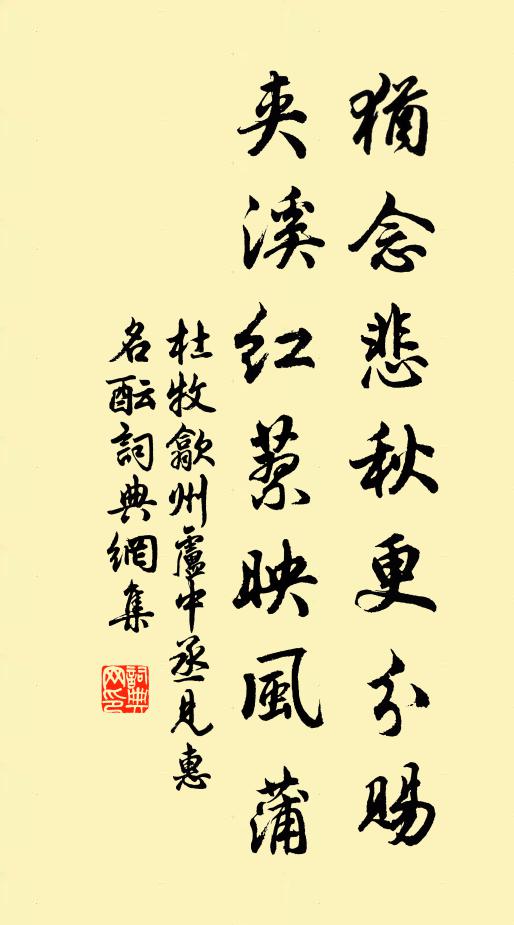 猶念悲秋更分賜
夾溪紅蓼映風蒲
杜牧歙州盧中丞見惠
名酝詞典網集
詞典网印